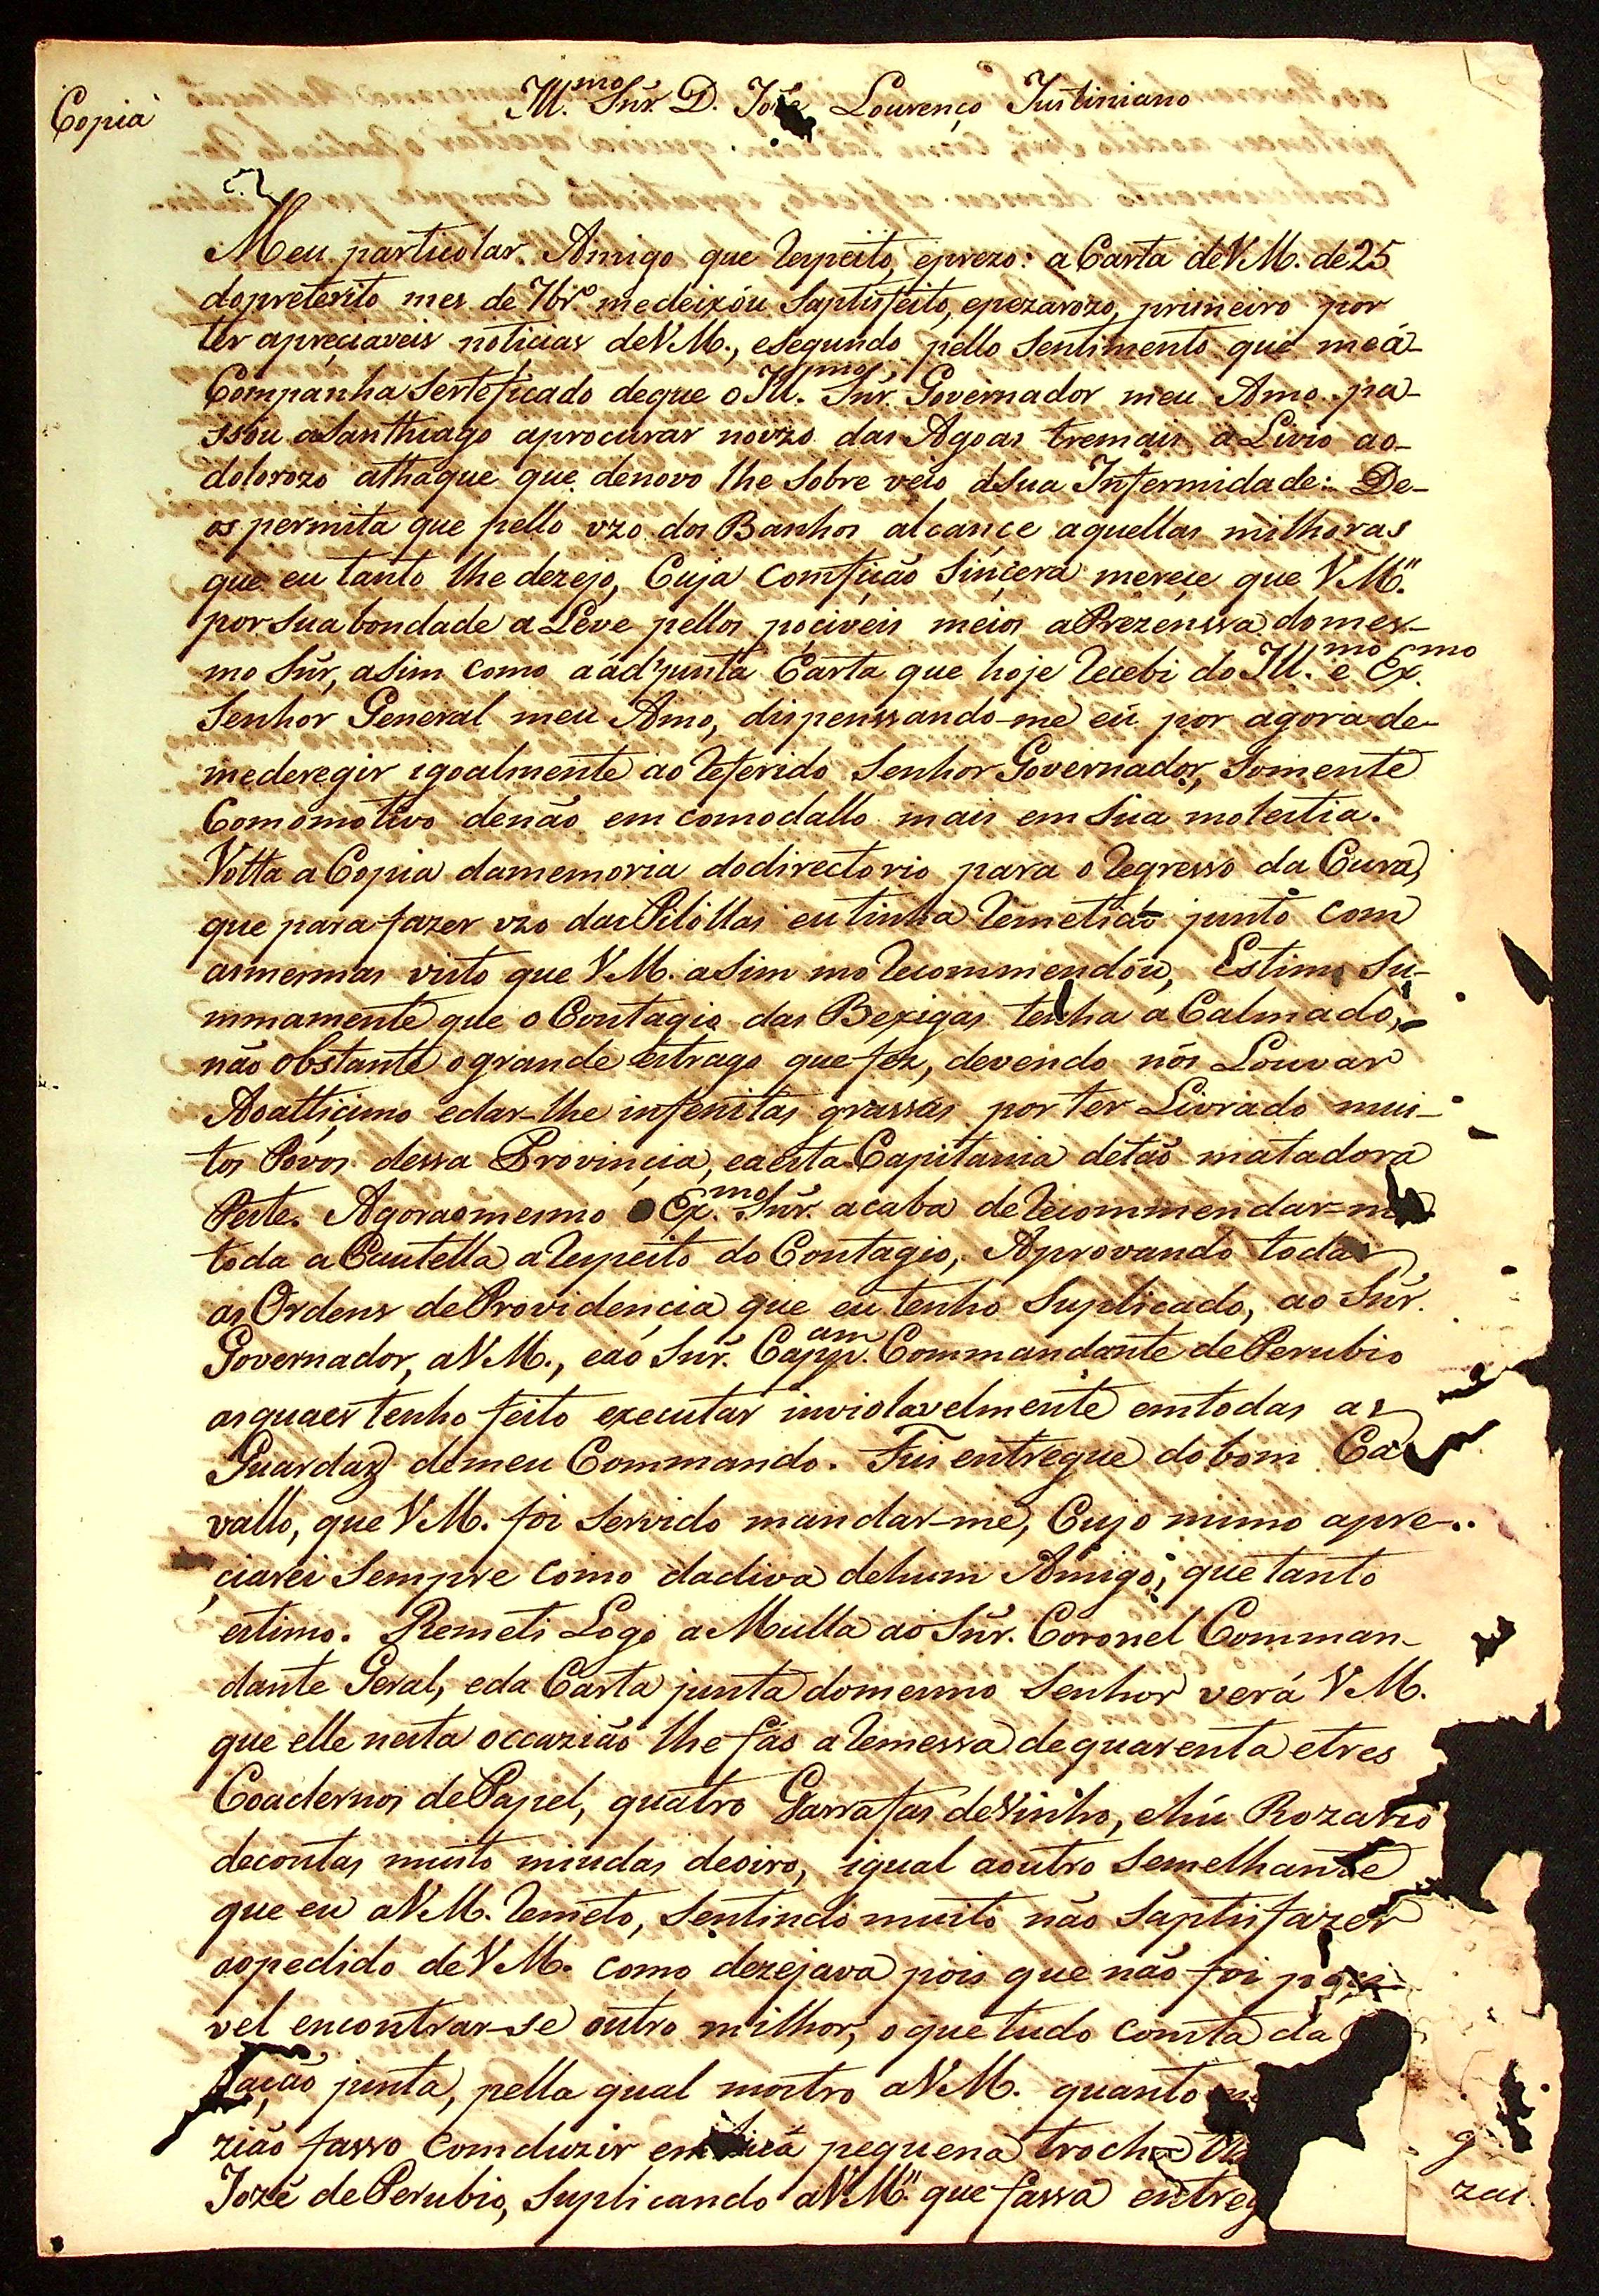 Copia
Ill.mo Snr. D. Joze Lourenço Justiniano
Meu particolar Amigo que respeito, eprezo: a Carta deVM. de 25
dopreterito mes de 7br.o medeixóu Saptisfeito, epezarozo, primeiro por
ter apreçiaveis notiçias deVM., eSegundo pello Sentimento que meá-
Companha Sertoficado deque o Ill.mo Snr. Governador meu Amo pa-
ssou aSanthiago aprocurar nouzo das Agoas tremais a Livio ao-
dolorozo athaque que denovo lhe Sobre veio dSua Infermidade: De-
os permita que pello uzo dos Banhos alcançe aquellas milhoras
que eu tanto lhe dezejo, Cuja Comfição Sinçera mereçe que VM.
por Sua bondade a Leve pellos poçiveis meios aPrezenssa domes-
mo Snr, aSim Como aádjunta Carta que hoje recebi do Ill.mo e Ex.mo
Senhor General meu Amo, dispenssando-me eú por agora de-
mederegir igoalmente ao referido Senhor Governador, Somente
Comomotivo denão emcomodallo mais em Sua molestia.
Volta a Copia damemoria dodirectorio para o regresso da Cura,
que para fazer uzo das Pilollas eu tinha remetido junto com
asmesmas visto que VM. aSim mo recommendóu, Estimo Su-
mmamente que o Contagio das Bexigas tenha a Calmado,
não obstante ogrande estrago que fez, devendo nós Louvar
Aoaltiçimo edar-lhe infenitas grassas por ter Livrado mui-
tos Povos dessa Provinçia, eaesta Capitania detão matadora
Peste. Agoraomesmo o Ex.mo Snr. acaba de recommendar-me
toda a Cautella arespeito do Contagio, Aprovando todas
as Ordens deProvidençia que eu tenho Suplicado, ao Snr.
Governador, aVM., eao Snr. Capp.am Commandante dePerubio
asquaes tenho feito executar inviolavelmente emtodas as
Guardas demeu Commando. Fui entregue dobom Ca
vallo, que VM. foi Servido mandar-me, Cujo mimo apre-
çiarei Sempre como dadiva dehum Amigo, que tanto
estimo. Remeti Logo a Mulla ao Snr. Coronel Comman-
dante Geral, eda Carta junta domesmo Senhor verá VM.
que elle nesta occazião lhe fás aremessa dequarenta etres
Coadernos dePapel, quatro Garrafas deVinho, ehú Rozario
decontas muito miudas deoiro, igual aoutro Semelhante
que eu aVM. remeto, Sentindo muito não Saptisfazer
aopedido deVM. como dezejava pois que não foi poçi
vel encontrar-se outro milhor, oque tudo Comsta da
lação junta, pella qual mostro aVM. quanto
zião fasso Comduzir em huá pequena trocha
Jozé dePerubio, Suplicando aVM. que fassa entreg